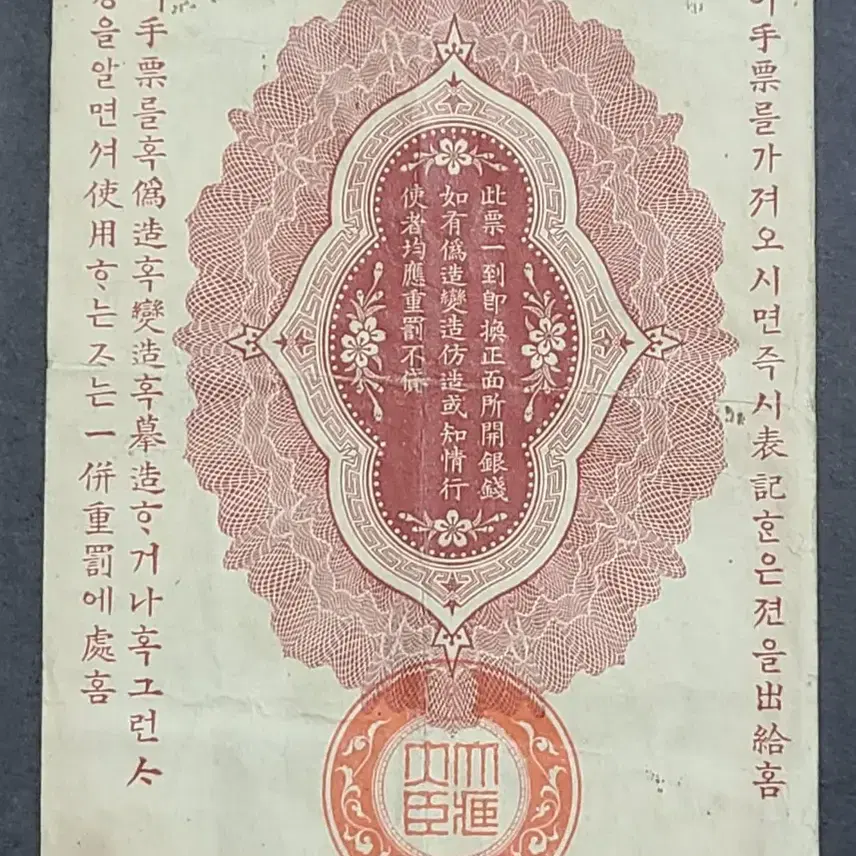 手票를가져오시면즉시表記ᄒᆞᆫ은젼을出給홈
此票一到卽換正面所開銀錢
如有僞造變造仿造或知情行
使者均應重罰不貸
手票를혹僞造혹變造혹摹造ᄒᆞ거나혹그런ᄉᆞ
을알면셔使用ᄒᆞ는ᄌᆞ는一併重罰에處홈
大藏
大臣